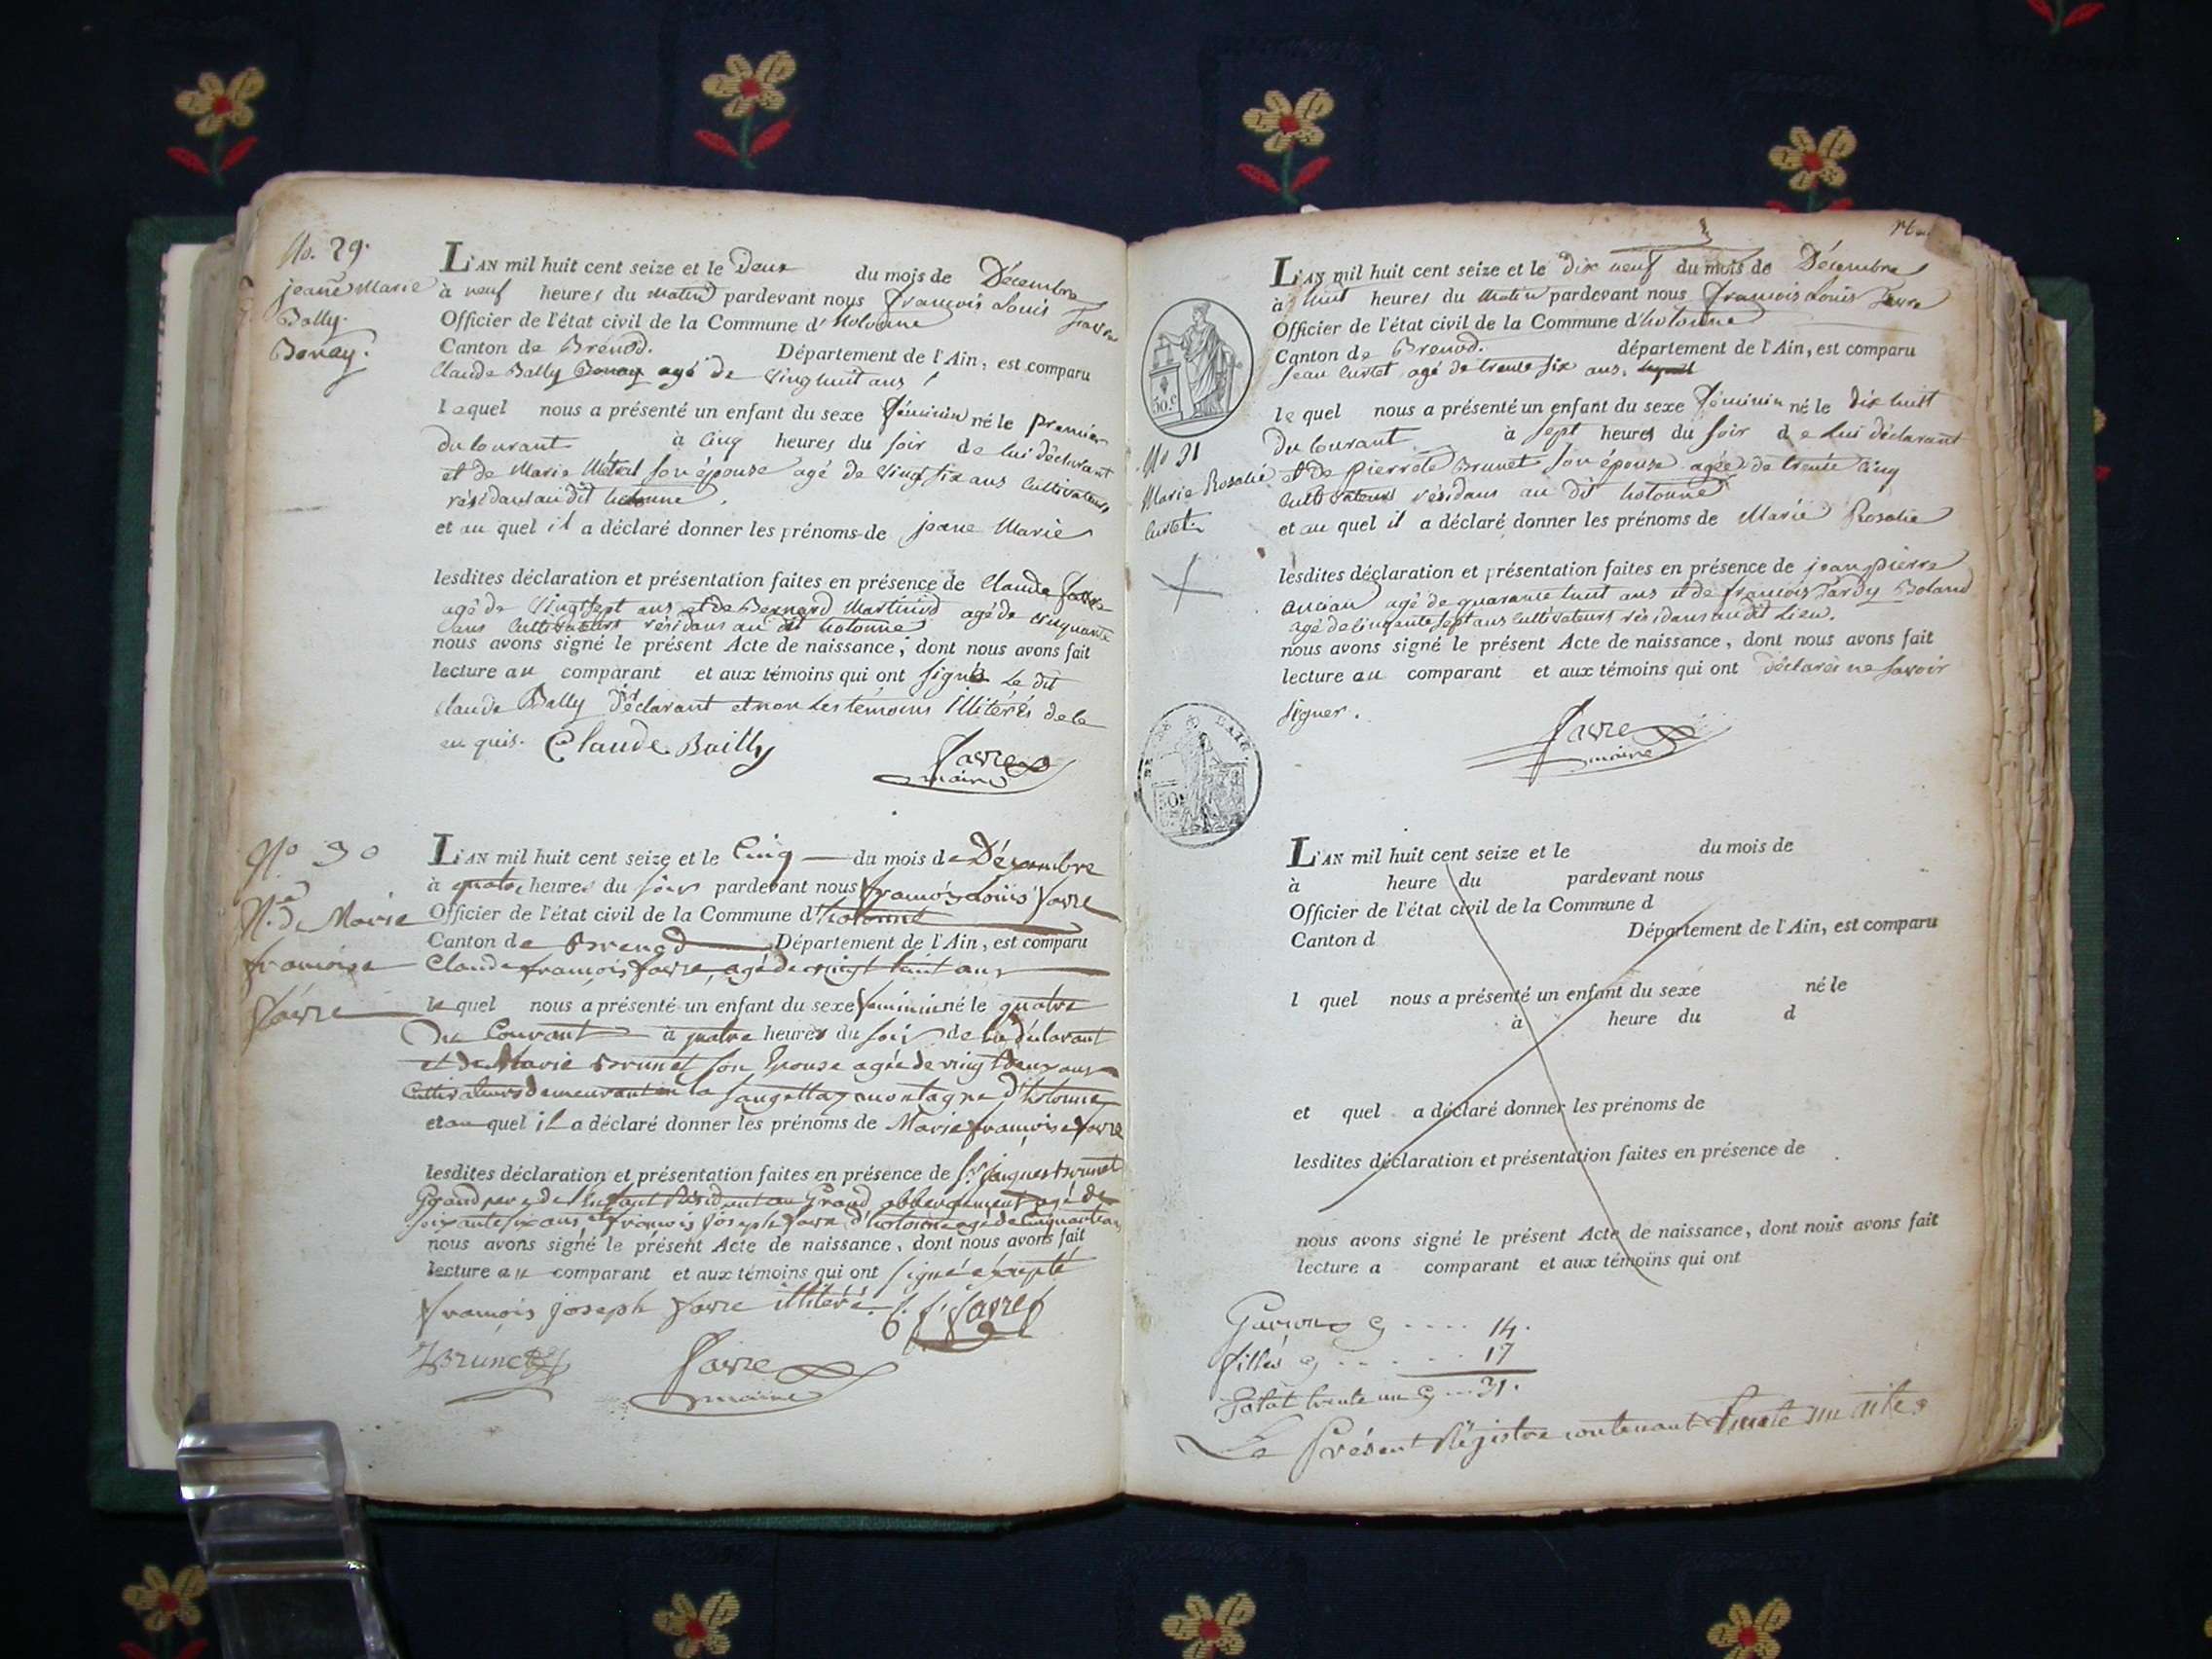 No. 29.
jeane Marie
Bally.
Bonay.
L'AN mil huit cent seize et le Deux du mois de Décembre
à neuf heures du matin pardevant nous françois Louis favre
Officier de l'état civil de la Commune d'hotonne
Canton de Brenod. Département de l'Ain, est comparu
Claude Bally Bonay agé de vingt huit ans
lequel nous a présenté un enfant du sexe féminin né le premier
du Courant à Cinq heures du soir de lui déclarant
et de Marie Métral son épouse agé de vingt six ans Cultivateurs
résidans au dit hotonne.
et au quel il a déclaré donner les prénoms de jeane Marie
lesdites déclaration et présentation faites en présence de Claude favre
agé de vingt sept ans et de Bernard Martinod agé de cinquante
ans Cultivateurs résidans au dit hotonne
nous avons signé le présent Acte de naissance, dont nous avons fait
lecture au comparant et aux témoins qui ont signé Le dit
Claude Bally Déclarant et non les témoins illitérés de ce
en quis. Claude Bailly
favre
maire
No 30
N.ce de Marie
françoise
favre
L'AN mil huit cent seize et le Cinq du mois de Décembre
à quatre heures du soir pardevant nous françois Louis favre
Officier de l'état civil de la Commune d'hotonne
Canton de Brenod Département de l'Ain, est comparu
Claude françois favre, agé de vingt huit ans
lequel nous a présenté un enfant du sexe feminin né le quatre
Du Courant à quatre heures du soir de lui déclarant
et de Marie Brunet son Epouse agée de vingt deux ans
Cultivateurs demeurant en la montagne d'hotonne
et au quel il a déclaré donner les prénoms de Marie françoise favre
lesdites déclaration et présentation faites en présence de Sr. jaques Brunet
Grand pere de l'Enfant Résident au Grand abbergement agé de
soixante six ans et françois joseph favre d'hotonne agé de cinquante ans
nous avons signé le présent Acte de naissance, dont nous avons fait
lecture au comparant et aux témoins qui ont signé éxcepté
françois joseph favre illitéré. C. f. favre
Brunet
favre
maire
L'AN mil huit cent seize et le dix neuf du mois de Décembre
à huit heures du matin pardevant nous françois Louis favre
Officier de l'état civil de la Commune d'hotonne
Canton de Brenod. département de l'Ain, est comparu
Jean Curtet agé de trente six ans.
50.c
No 31
Marie Rosalie
Curtet
lequel nous a présenté un enfant du sexe féminin né le dix huit
du Courant à sept heures du soir de lui déclarant
et de pierrete Brunet son épouse agée de trente cinq
Cultivateurs résidans au dit hotonne
et au quel il a déclaré donner les prénoms de Marie Rosalie
lesdites déclaration et présentation faites en présence de jean pierre
ancian agé de quarante huit ans et de françois Tardy Boland
agé de cinquante sept ans Cultivateurs résidans au dit Lieu.
nous avons signé le présent Acte de naissance, dont nous avons fait
lecture au comparant et aux témoins qui ont déclarés ne savoir
signer.
favre
maire
L'AN mil huit cent seize et le du mois de
à heure du pardevant nous
Officier de l'état civil de la Commune d
Canton d Département de l'Ain, est comparu
l quel nous a présenté un enfant du sexe né le
à heure du d
et quel a déclaré donner les prénoms de
lesdites déclaration et présentation faites en présence de
nous avons signé le présent Acte de naissance, dont nous avons fait
lecture a comparant et aux témoins qui ont
Garçons 14.
filles 17
Total trente un 31.
Le Présent Régistre contenant trente un actes